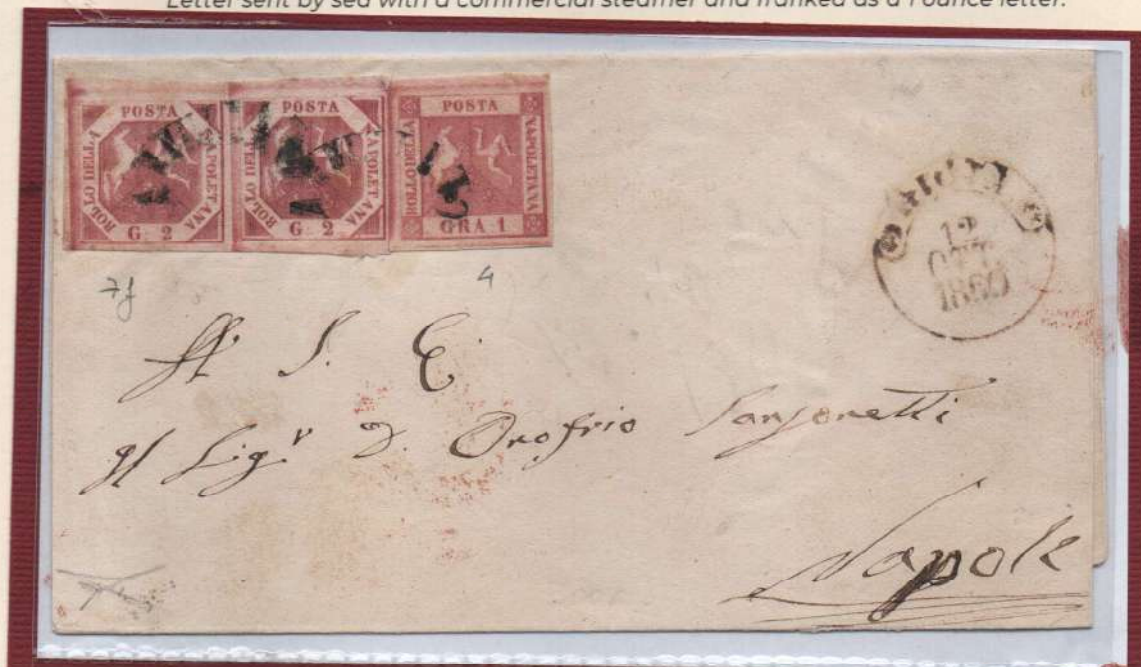 Letter sent by sea with a commercial steamer and franked as a 1 ounce letter.
POSTA
BOLLO DELLA
NAPOLETANA
G. 2
POSTA
BOLLO DELLA
NAPOLETANA
G. 2
POSTA
BOLLO DELLA
NAPOLETANA
GRA 1
12
OTT.
1860
7f
4
A S. E.
Il Sigr D. Onofrio
Napoli